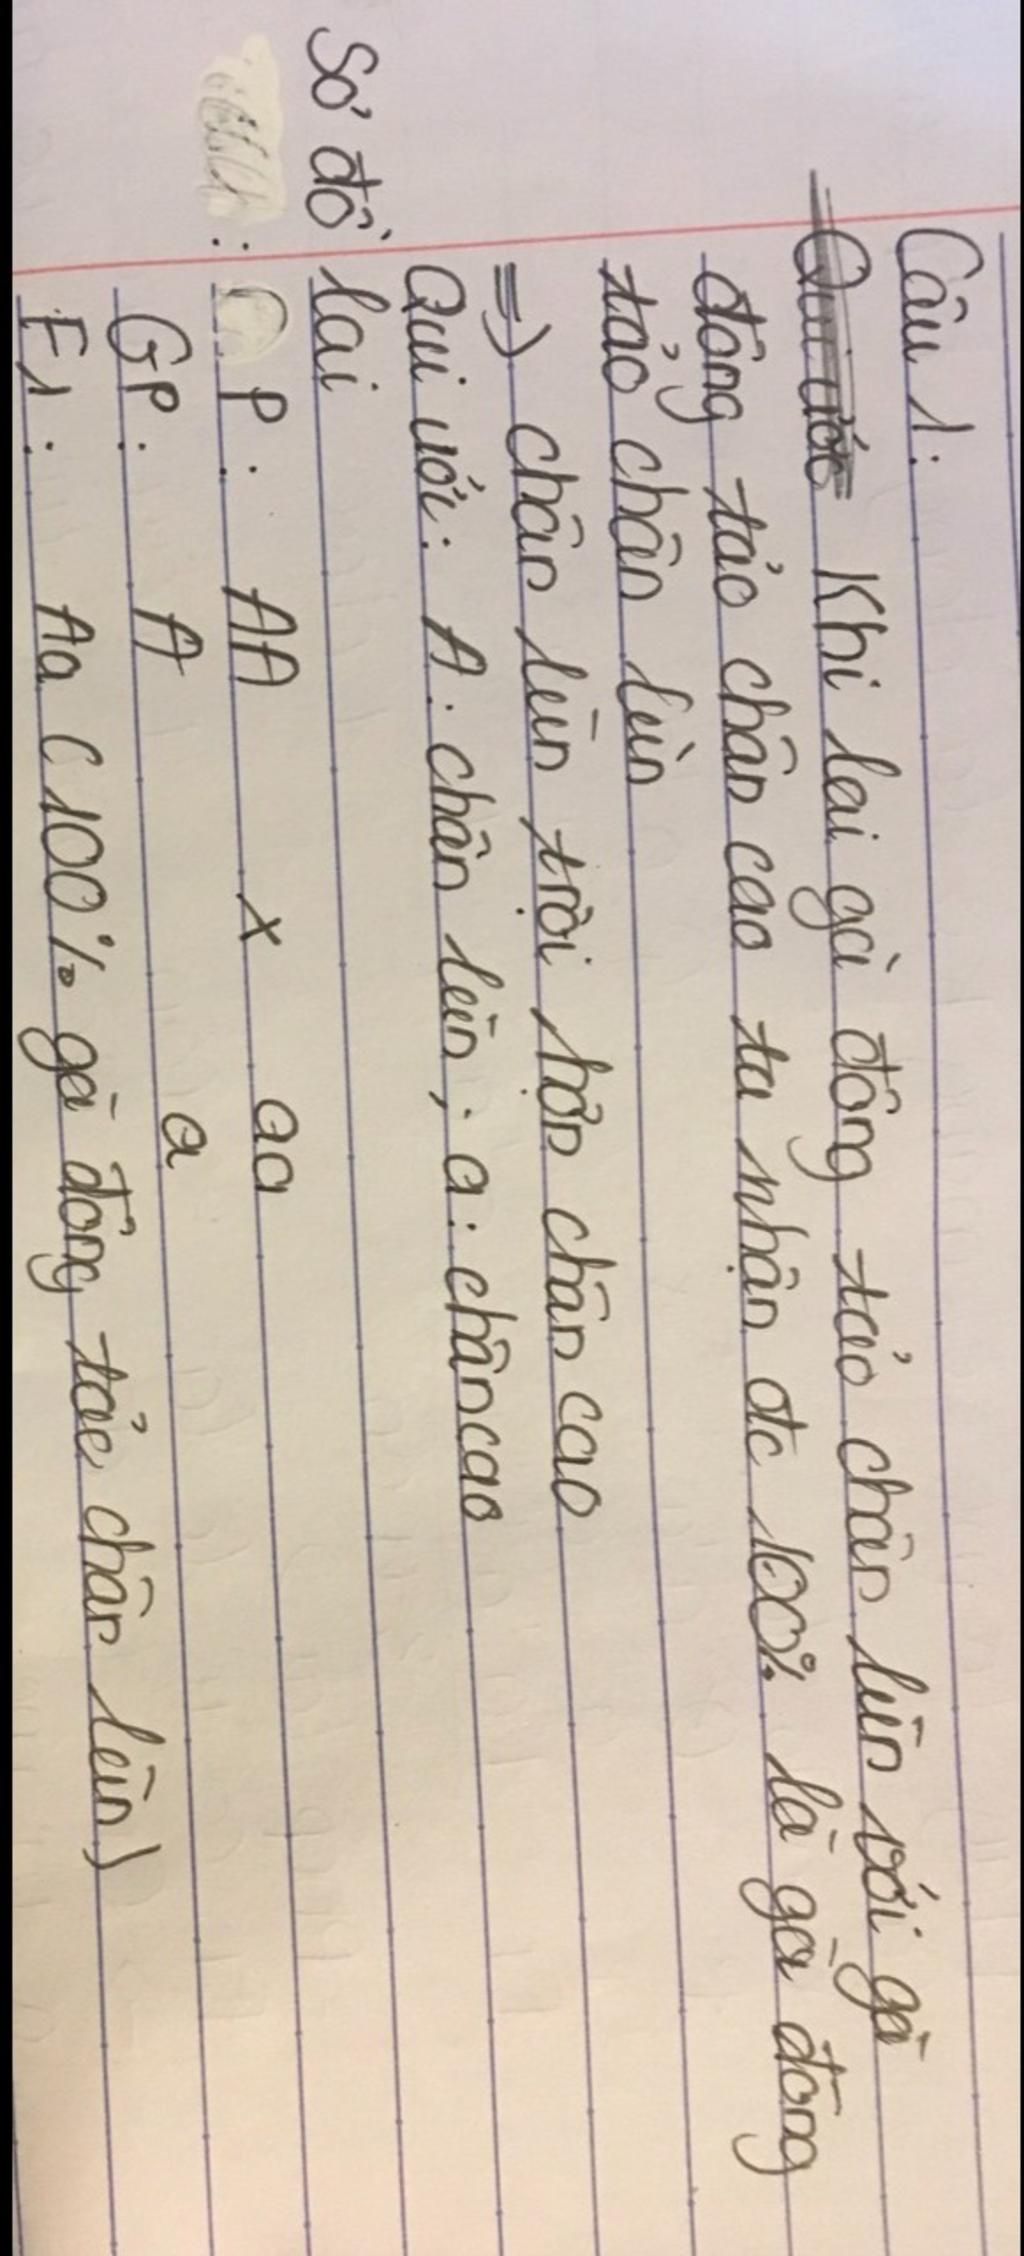 Câu 1:
Qui ước Khi lai gà đông tảo chân lùn với gà
đông tảo chân cao ta nhận đc 100% là gà đông
tảo chân lùn
=) chân lùn trội hơn chân cao
Qui ước: A: chân lùn; a: chân cao
Sơ đồ lai
: P: AA x aa
GP: A a
F1: Aa (100% gà đông tảo chân lùn)